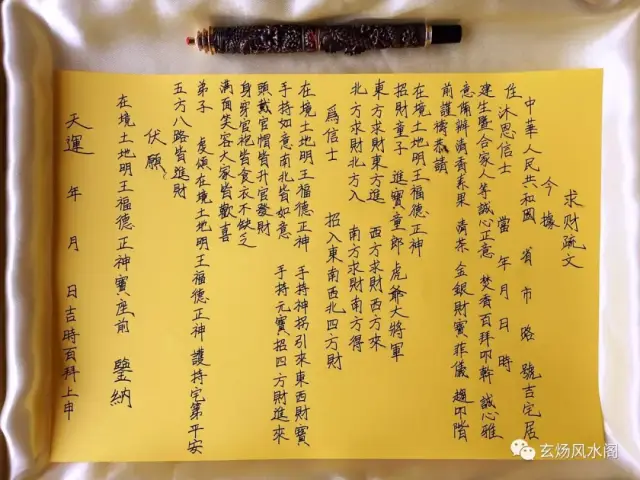 求財疏文
今據
中華人民共和國 省 市 路 號吉宅居
住沐恩信士 當 年 月 日 時
建生暨合家人等誠心正意 焚香百拜叩幹 誠心雅
意備辦清香素果 清茶 金銀財寶菲儀 趨叩階
前謹禱恭請
在境土地明王福德正神
招財童子 進寶童郎 虎爺大將軍
東方求財東方進 西方求財西方來
北方求財北方入 南方求財南方得
為信士 招入東南西北四方財
在境土地明王福德正神 手持神拐引來東西財寶
手持如意南北皆如意 手持元寶招四方財進來
頭戴官帽皆升官發財
身穿官袍皆食衣不缺乏
滿面笑容大家皆歡喜
弟子 虔煩在境土地明王福德正神 護持宅第平安
五方八路皆進財
伏願
在境土地明王福德正神寶座前 鑒納
天運 年 月 日吉時百拜上申
玄炀风水阁